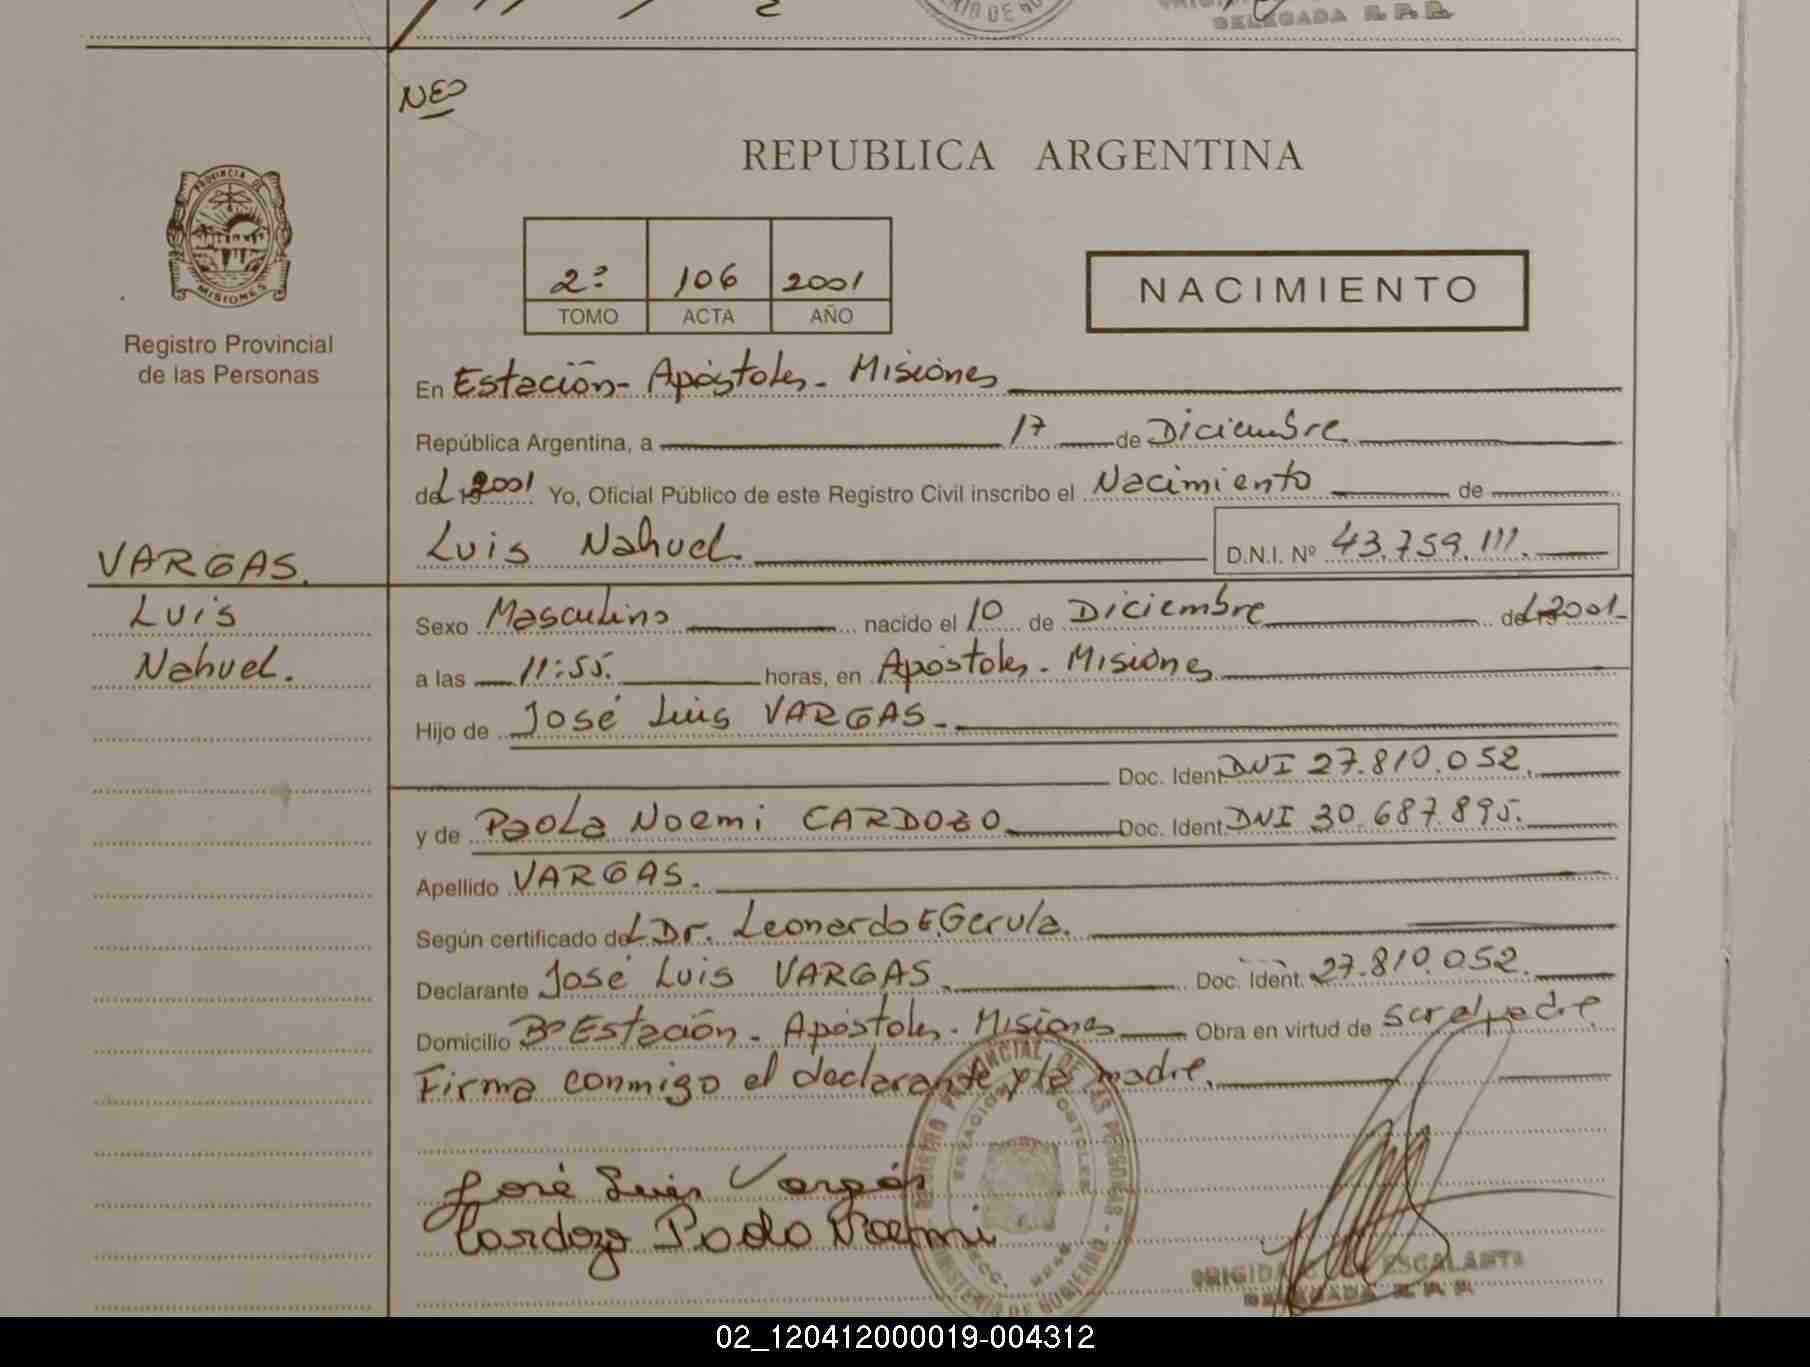 DELEGADA R.P.P.
NES
PROVINCIA DE
MISIONES
Registro Provincial
de las Personas
REPUBLICA ARGENTINA
2º 106 2001
TOMO ACTA AÑO
NACIMIENTO
En Estación - Apóstoles - Misiones
República Argentina, a 17 de Diciembre
del 2001 Yo, Oficial Público de este Registro Civil inscribo el Nacimiento de
Luis Nahuel. D.N.I. Nº 43.759.111.
VARGAS.
Luis
Nahuel.
Sexo Masculino nacido el 10 de Diciembre del 2001-
a las 11:55. horas, en Apóstoles - Misiones
Hijo de José Luis VARGAS-
Doc. Ident. DNI 27.810.052.
y de Paola Noemi CARDOZO Doc. Ident. DNI 30.687.895.
Apellido VARGAS.
Según certificado del Dr. Leonardo E. Gerula.
Declarante José Luis VARGAS. Doc. Ident. 27.810.052.
Domicilio Bº Estación - Apóstoles - Misiones Obra en virtud de ser el padre
Firma conmigo el declarante y la madre.
José Luis Vargas
Cardozo Paola Noemi
REGISTRO PROVINCIAL DE LAS PERSONAS - MINISTERIO DE GOBIERNO
ESTACION APOSTOLES
ESCALANTE
DELEGADA R.P.P.
02_120412000019-004312